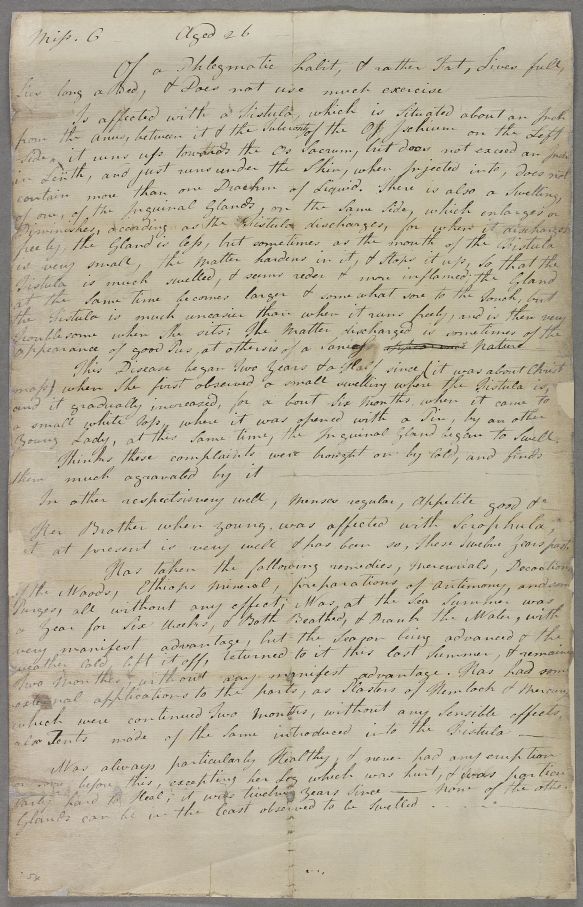 Miss. G — Aged 26
Of a Phlegmatic habit, & rather Fat, Lives full,
Lies long a Bed, & Does not use much exercise
Is affected with a Fistula, which is Situated about an Inch
from the anus, between it & the Tuberosity of the Os Ischium on the Left
Side, it runs up, towards the Os Sacrum, but does not exceed an Inch
in Length, and just runs under the Skin, when Injected into, does not
contain more than one Drachm of Liquid. There is also a Swelling,
of one, of the Inguinal Glands, on the Same Side, which enlarges or
Dyminishes, according as the Fistula discharges, for when it discharges
freely, the Gland is less, but sometimes as the mouth of the Fistula
is very small, the matter hardens in it, & stops it up, so that the
Fistula is much swelled, & seems reder & more inflamed: the Gland
at the Same time becomes larger & somewhat sore to the Touch, but
the Fistula is much uneasier than when it runs freely, and is then very
troublesome when She sits; The Matter discharged is sometimes of the
appearance of good Pus, at others is of a nature
This Disease began Two Years & a Half since (it was about Christ
mass) when She first observed a small swelling where the Fistula is,
and it gradually increased, for a bout Six Months when it came to
a small white Top, where it was opened with a Pin, by an other
Young Lady, at this Same time, the Inguinal Gland began to Swell.
Thinks these complaints were brought on by Cold, and finds
them much agravated by it
In other respects is very well, Menses regular, Appetite good &c
Her Brother when young was affected with Scrophula,
it at present is very well & has been so, these twelve Years past.
Has taken the following remedies, Mercurials, Decoctions
of the Woods, Ethiops mineral, preparations of Antimony, and some
Purges, all without any effect; Was, at the Sea Summer was
a Year for Six Weeks, & Both Beathed, & Drank the Water, with
very manifest advantage, but the Season being advanced & the
weather Cold, left it off, returned to it this last Summer, & remained
Two Months, without any manifest advantage. Has had some
external applications to the parts, as Plasters of Hemlock & Mercury
which were continued Two Months, without any Sensible effects,
also Tents made of the Same introduced into the Fistula —
Was always particularly Healthy, & never had any eruption
or before this, excepting her Leg which was hurt, & was particu
larly hard to Heal; it was twelve Years since — none of the other
Glands can be in the least observed to be Swelled